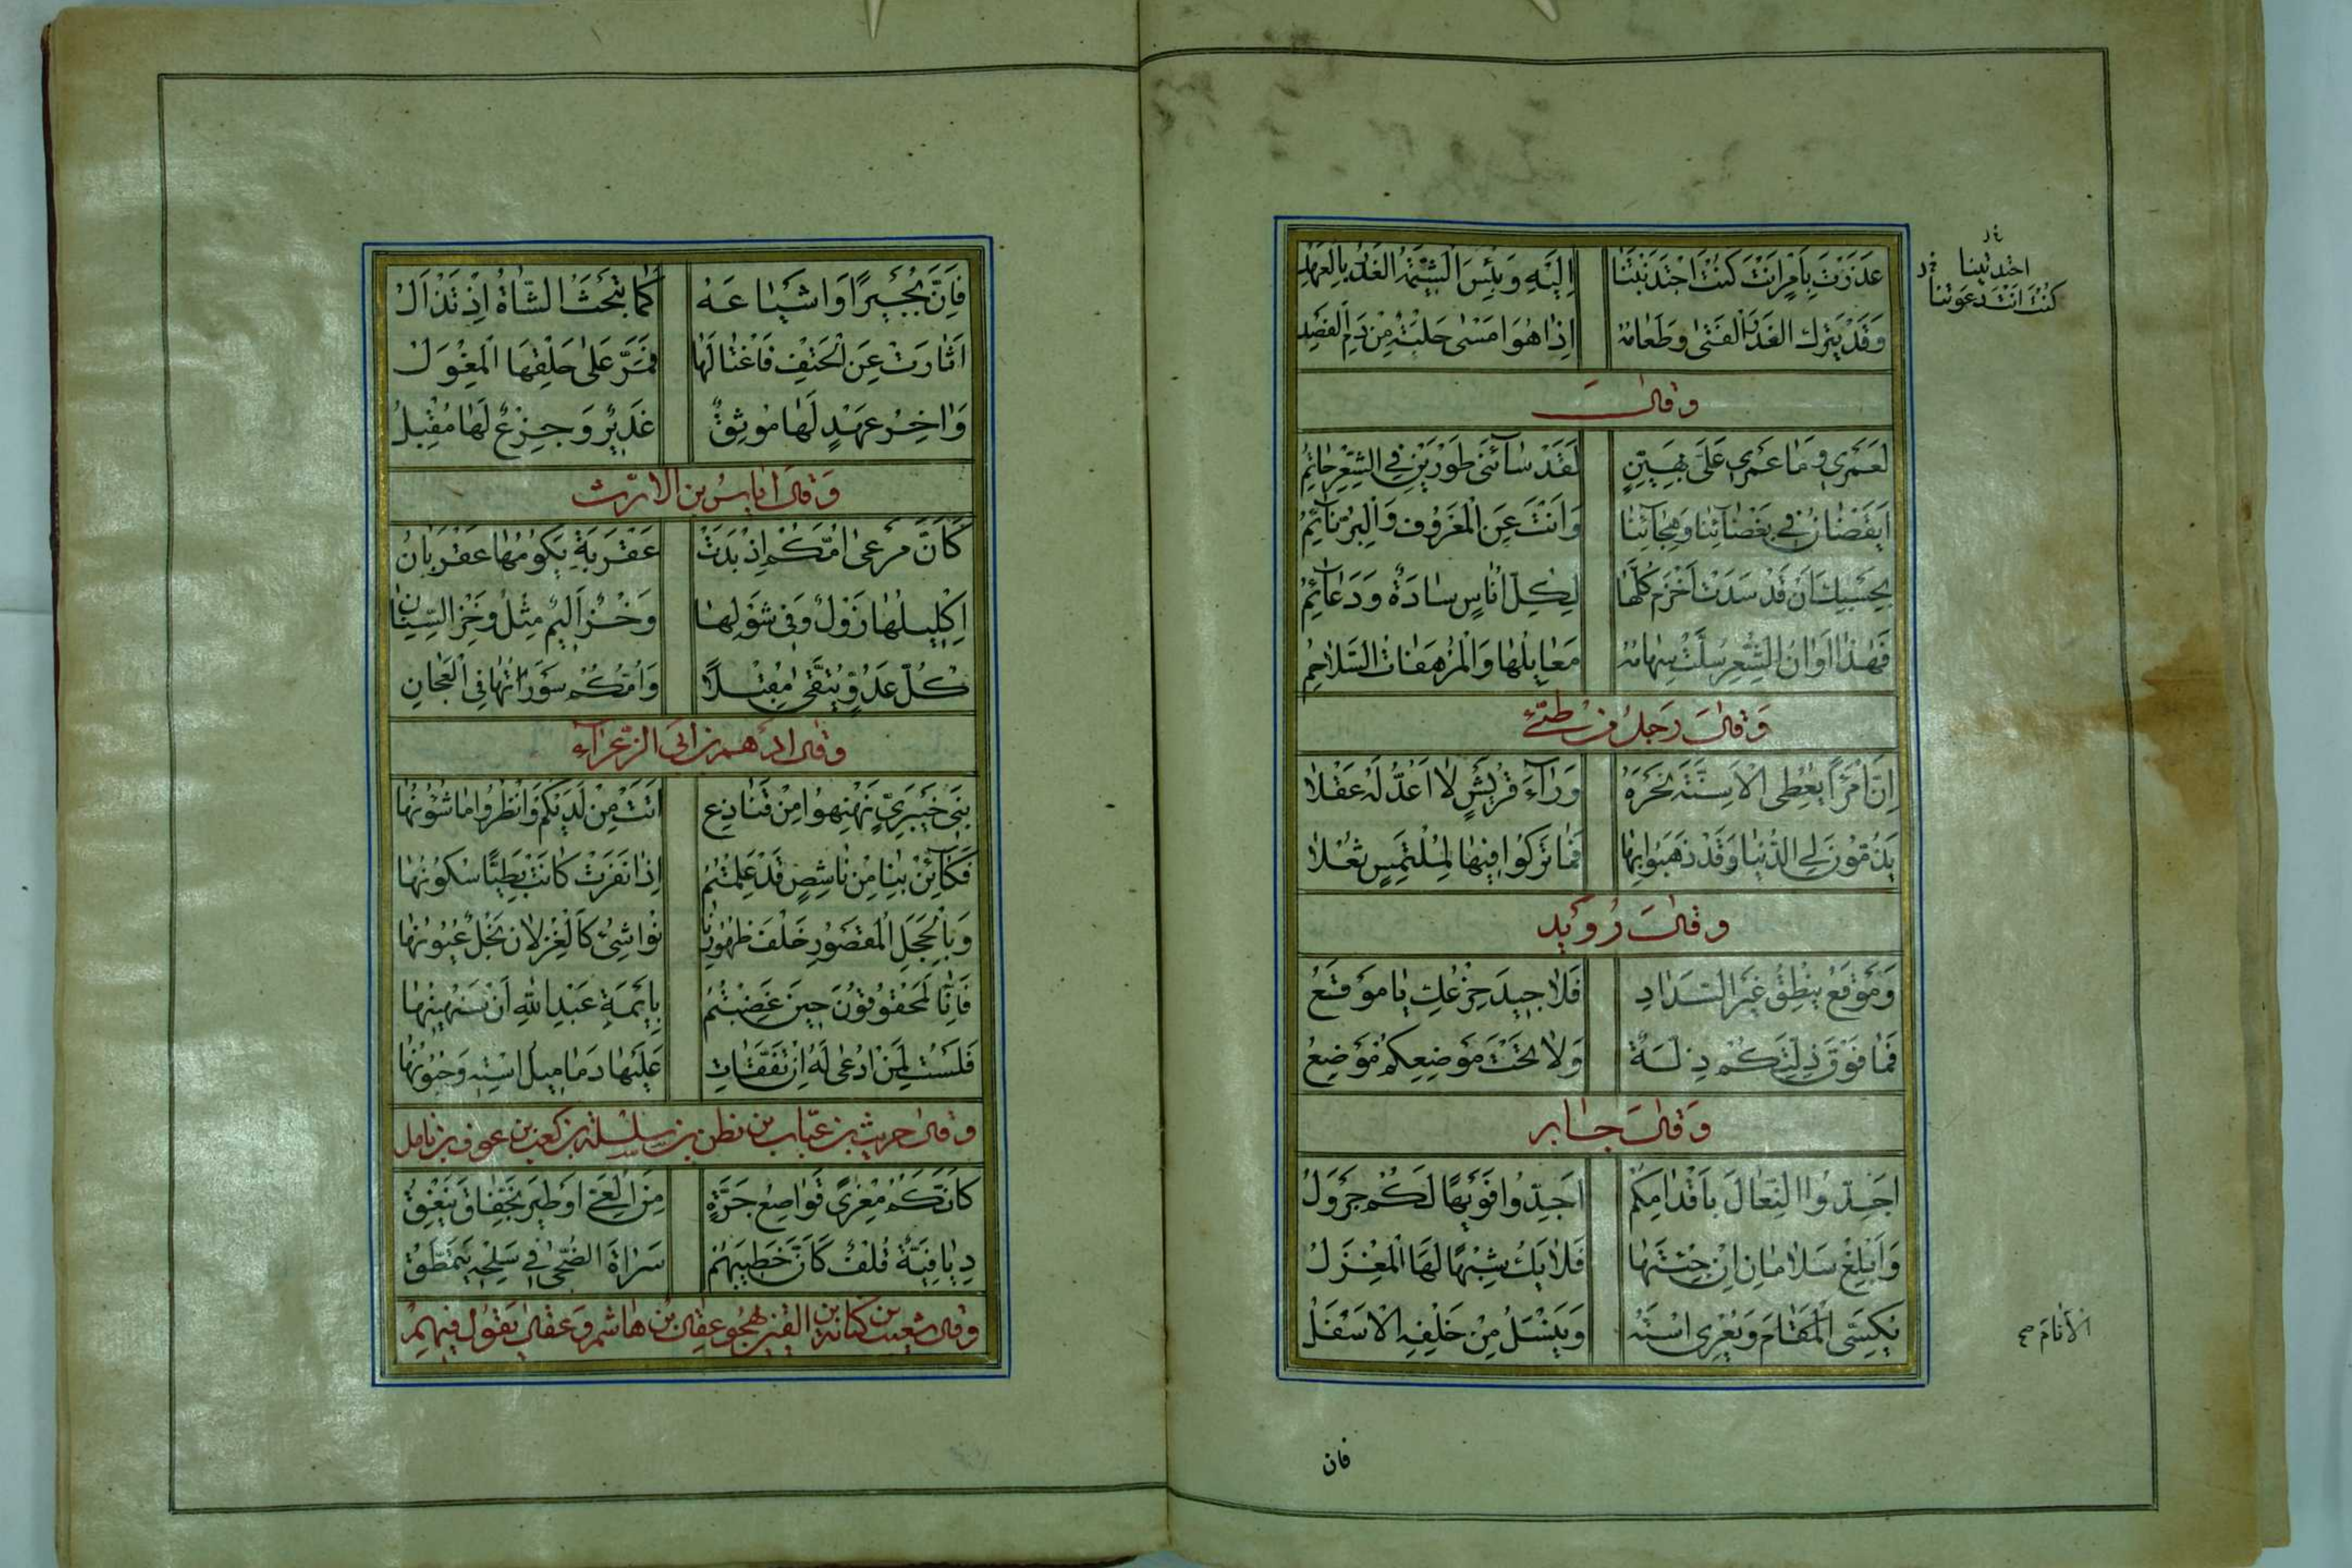 غَدَرْتَ بِاَمْرٍ اَنْتَ كُنْتَ اجْتَذَبْتَنَا اِلَيْهِ وَبِئْسَ الشِّيْمَةُ الغَدْرُ بِالعَهْدِ
وَقَدْ يَتْرُكُ الغَدْرَ الفَتٰى وَطَعَامُهُ اِذَا هُوَ اَمْسٰى حَلْبَةٌ مِنْ دَمِ الفَصْدِ
وَقَالَ
لَعَمْرِي وَمَا عَمْرِي عَلَيَّ بِهَيِّنٍ لَقَدْ سَآءَنِي طَوْرَيْنِ فِي الشِّعْرِ حَاتِمُ
اَيَقْضَانُ فِي بَغْضَآئِنَا وَهِجَآئِنَا وَاَنْتَ عَنِ الْمَعْرُوفِ وَالْبِرِّ نَآئِمُ
بِحَسْبِكَ اَنْ قَدْ سَدَتْ اَخْزَمَ كُلَّهَا لِكُلِّ اُنَاسٍ سَادَةٌ وَدَعَآئِمُ
فَهٰذَا اَوَانُ الشِّعْرِ سُلَّتْ سِهَامُهُ مَعَابِلُهَا وَالْمُرْهَفَاتُ السَّلَاجِمُ
وَقَالَ رَجُلٌ مِنْ طَيِّئٍ
اِنَّ امْرَأً يُعْطِي الْاَسِنَّةَ نَحْرَهُ وَرَآءَ قُرَيْشٍ لَا اَعُدُّ لَهُ عَقْلَا
يَذُمُّونَ لِي الدُّنْيَا وَقَدْ ذَهَبُوا بِهَا فَمَا تَرَكُوا فِيْهَا لِمُلْتَمِسٍ ثُعْلَا
وَقَالَ رُوَيْد
وَمَوْقَعُ يَنْطِقُ غَيْرَ السَّدَادِ فَلَا جِيدَ جِزْعُكِ يَا مَوْقَعُ
فَمَا فَوْقَ ذِلَّتِكُمْ ذِلَّةٌ وَلَا تَحْتَ مَوْضِعِكُمْ مَوْضِعُ
وَقَالَ جَابِر
اَجِدُّوا النِّعَالَ بِاَقْدَامِكُمْ اَجِدُّوا فَوَيْهًا لَكُمْ جَرْوَلُ
وَاَبْلِغْ سَلَامَانِ اِنْ جِئْتَهَا فَلَا يَكُ شِبْهًا لَهَا الْمِغْزَلُ
يُكَسِّي الْمَقَامَ وَيُعْرِي اسْتَهُ وَيَنْسَلُّ مِنْ خَلْفِهِ الْاَسْفَلُ
اجتذبتنا
كُنْتَ اَنْتَ دَعَوْتَنَا
الاَنَامَ صح
فان
فَاِنَّ بُجَيْرًا وَاَشْيَاعَهُ كَمَا تَبْحَثُ الشَّاةُ اِذْ تَذْأَلُ
اَثَارَتْ عَنِ الْحَتْفِ فَاغْتَالَهَا فَمَرَّ عَلٰى حَلْقِهَا الْمِغْوَلُ
وَاٰخِرُ عَهْدٍ لَهَا مُوْنِقٌ غَدِيْرٌ وَجِزْعٌ لَهَا مُقْبِلُ
وَقَالَ اِيَاسُ بن الاَرَتّ
كَاَنَّ مَرْعٰى اُمَّكُمْ اِذْ بَدَتْ عَقْرَبَةٌ يَكُومُهَا عَقْرَبَانُ
اِكْلِيلُهَا زَوْلٌ وَفِي شَوْلِهَا وَخْزٌ اَلِيْمٌ مِثْلُ وَخْزِ السِّنَانِ
كُلُّ عَدُوٍّ يُتَّقٰى مُقْبِلًا وَاُمُّكُمْ سَوْرَاتُهَا فِي الْعِجَانِ
وَقَالَ اَدْهَم بن اَبِي الزَّعْرَآءِ
بَنِي خَيْبَرِيٍّ نَهْنِهُوا مِنْ قَنَاذِعٍ اَتَتْ مِنْ لَدَيْكُمْ وَانْظُرُوا مَا شُؤُنُهَا
فَكَآئِنْ بِنَا مِنْ نَاشِصٍ قَدْ عَلِمْتُمُ اِذَا نَفَرَتْ كَانَتْ بَطِيئًا سُكُونُهَا
وَبِالْحَجَلِ الْمَقْصُورِ خَلْفَ ظُهُورِنَا نَوَاشِئُ كَالْغِزْلَانِ نُجْلٌ عُيُونُهَا
فَاِنَّا لَمَحْقُوقُونَ حِينَ غَضِبْتُمُ بِاَئِمَةِ عَبْدِ اللّٰهِ اَنْ سَنُهِينُهَا
فَلَسْتُ لِمَنْ اُدْعٰى لَهُ اِنْ تَفَقَّأَتْ عَلَيْهَا دَمَامِيلُ اسْتِهِ وَحُبُونُهَا
وَقَالَ حُرَيْث بن عَنَّاب بن مطر بن سِلْسِلَة بن كعب بن عوف بن نابل
كَاَنَّكُمُ مِعْزًى قَوَاصِعُ جِرَّةٍ مِنَ الْعَيِّ اَوْ طَيْرٌ بِخَفَّانَ يَنْعِقُ
دِيَافِيَّةٌ قُلْفٌ كَاَنَّ خَطِيبَهُمْ سَرَاةَ الضُّحٰى فِي سَلْحِهِ يَتَمَطَّقُ
وَقَالَ شعيث بن كنانة بن القين يَهْجُو عقال بن هَاشم وعقال يَقُولُ فِيهِمْ